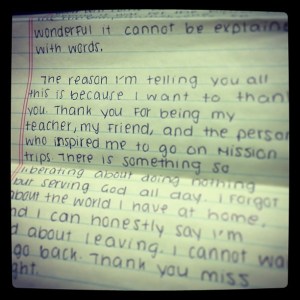 wonderful it cannot be
with words.
The reason I'm telling you all
this is because I want to
you. Thank you for being my
teacher, my friend, and the
who inspired me to go on Mission
trips. There is something so
liberating about doing nothing
but serving God all day. I forgot
about the world I have at home.
I can honestly say I'm
about leaving. I cannot
go back. Thank you miss